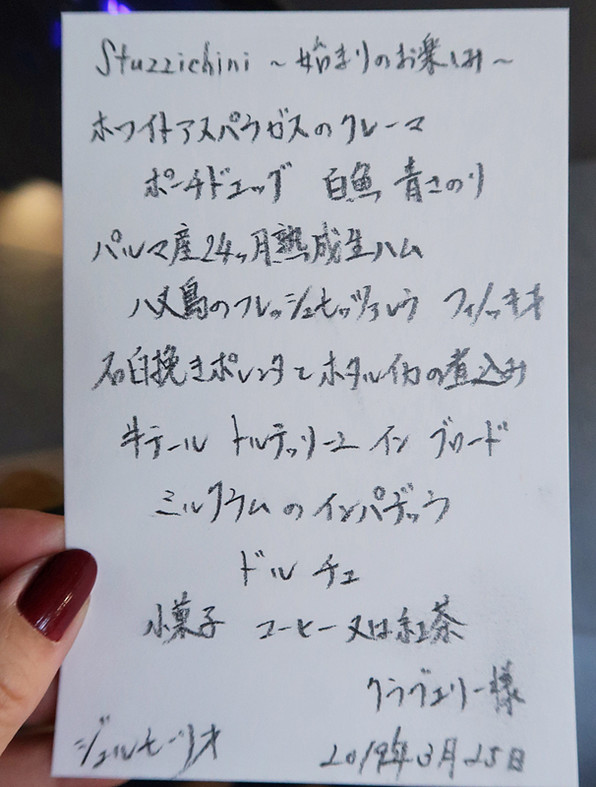 Stuzzichini ～始まりのお楽しみ～
ホワイトアスパラガスのクレーマ
ポーチドエッグ 白魚 青さのり
パルマ産24ヶ月熟成生ハム
八丈島のフレッシュモッツァレラ フィノッキオ
石臼挽きポレンタとホタルイカの煮込み
牛テール トルテッリーニ イン ブロード
ミルクラムのインパデッラ
ドルチェ
小菓子 コーヒー又は紅茶
様
ジェルモーリオ
2019年3月25日